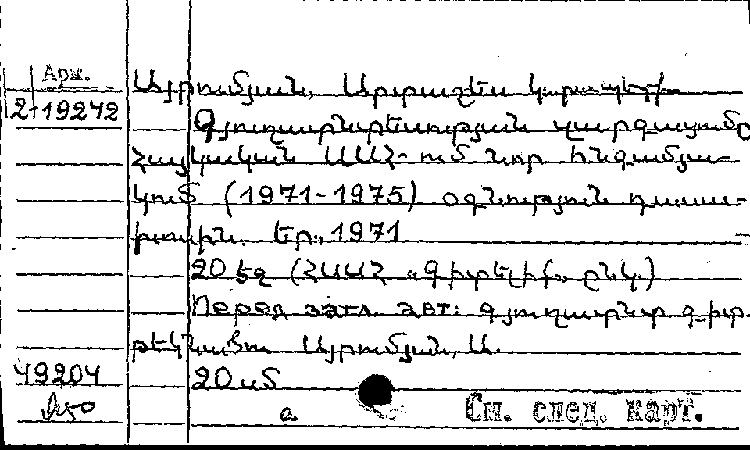 Арм.
2-19242
Այրումյան, Արտաշես Կարապետի
Գյուղատնտեսության զարգացումը
Հայկական ՍՍՀ-ում նոր հնգամյա-
կում (1971-1975) օգնություն դասա-
խոսին. Եր., 1971
20 էջ (ՀՍՍՀ „Գիտելիք„ ընկ.)
Перед загл. авт: գյուղատնտ. գիտ.
թեկնածու Այրումյան, Ա.
49204
20 սմ
а
См. след. карт.